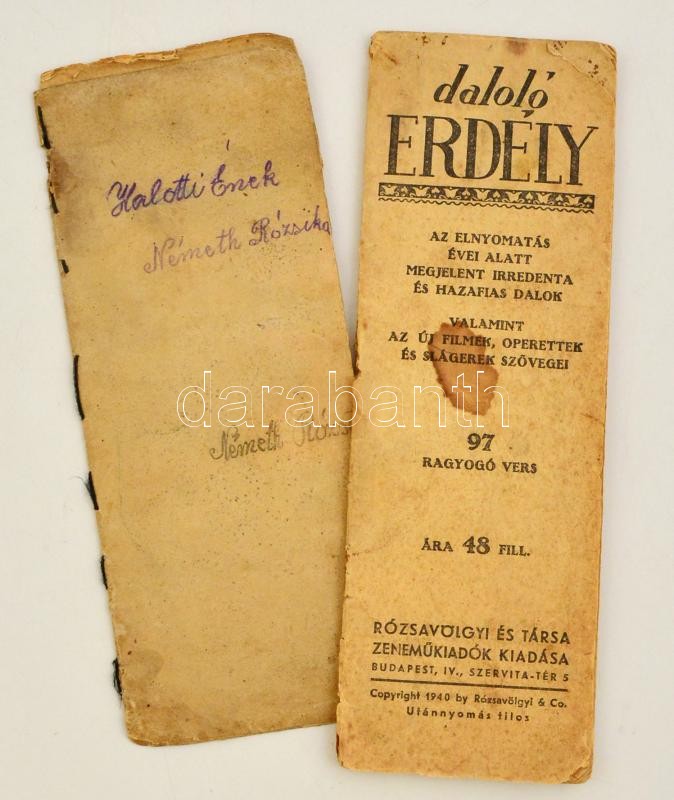 Halotti Ének
Németh Rózsika
Németh
daloló
ERDÉLY
AZ ELNYOMATÁS
ÉVEI ALATT
MEGJELENT IRREDENTA
ÉS HAZAFIAS DALOK
VALAMINT
AZ ÚJ FILMEK, OPERETTEK
ÉS SLÁGEREK SZÖVEGEI
97
RAGYOGÓ VERS
ÁRA 48 FILL.
RÓZSAVÖLGYI ÉS TÁRSA
ZENEMŰKIADÓK KIADÁSA
BUDAPEST, IV., SZERVITA-TÉR 5
Copyright 1940 by Rózsavölgyi & Co.
Utánnyomás tilos
darabanth